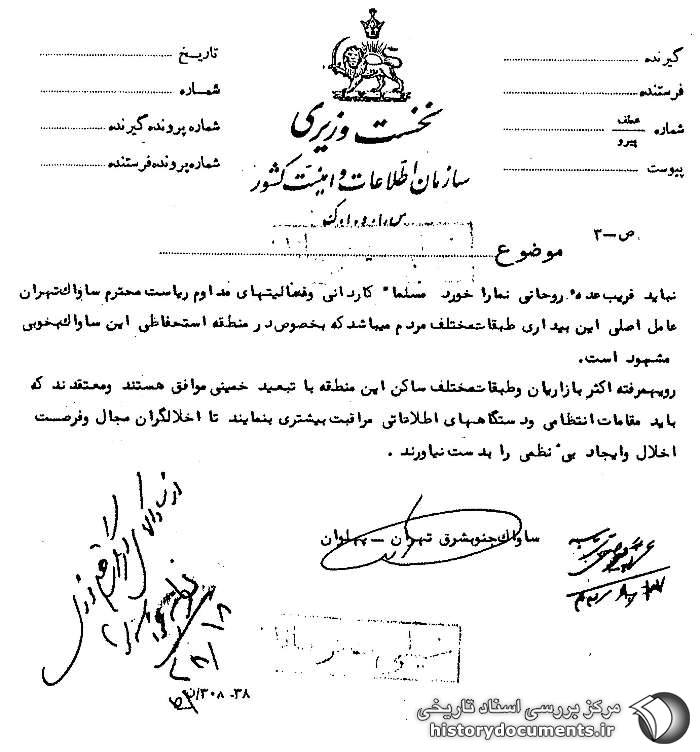 نخست وزیری
سازمان اطلاعات و امنیت کشور
س.ا.و.ا.ک
گیرنده
فرستنده
شماره عطف
پیرو
پیوست
تاریخ
شماره
شماره پرونده گیرنده
شماره پرونده فرستنده
ص-۳
موضوع
نباید فریب عده روحانی نما را خورد مسلما" کاردانی وفعالیتهای مداوم ریاست محترم ساواك تهران
عامل اصلی این بیداری طبقات مختلف مردم میباشد که بخصوص در منطقه استحفاظی این ساواك بخوبی
مشهود است.
رویهمرفته اکثر بازاریان وطبقات مختلف ساکن این منطقه با تبعید خمینی موافق هستند ومعتقدند که
باید مقامات انتظامی ودستگاههای اطلاعاتی مراقبت بیشتری بنمایند تا اخلالگران مجال وفرصت
اخلال وایجاد بی نظمی را بدست نیاورند.
ساواك جنوبشرق تهران – پهلوان
خیلی محرمانه
۳۸-۳۰۸/ن
مرکز بررسی اسناد تاریخی
historydocuments.ir